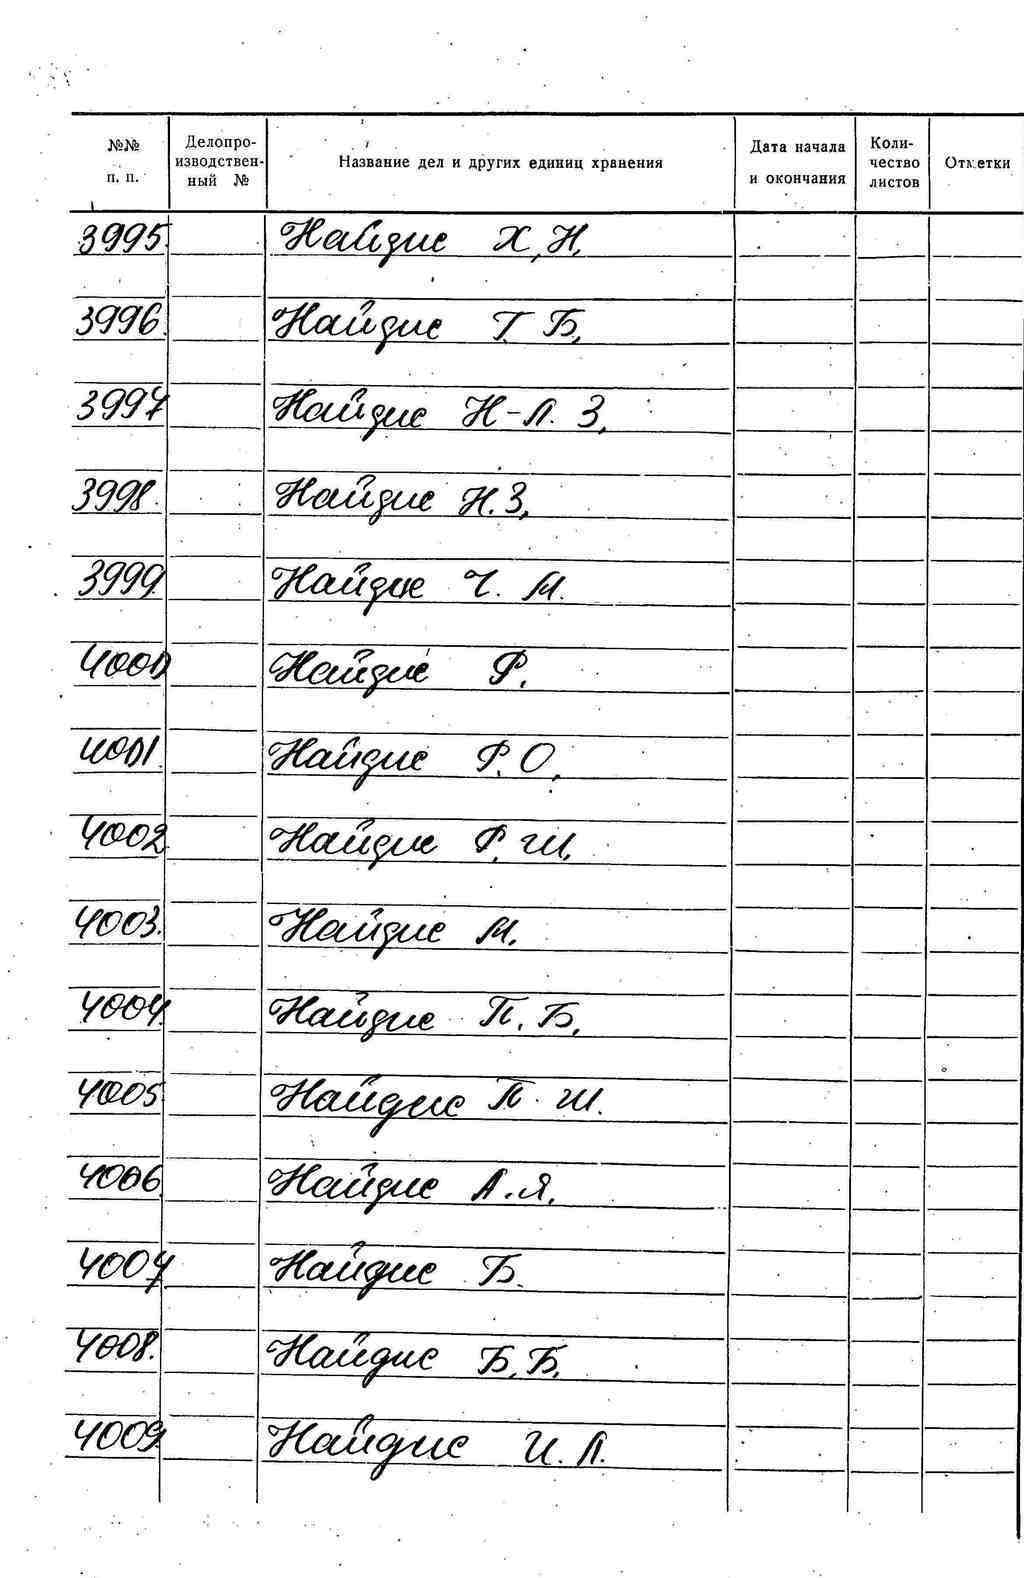 №№ п. п.
Делопроизводственный №
Название дел и других единиц хранения
Дата начала и окончания
Количество листов
Отметки
3995. Найдис Х. Н.
3996. Найдис Г. Б.
3997 Найдис Н-Л. З.
3998. Найдис Н. З.
3999. Найдис Ч. М.
4000 Найдис Р.
4001. Найдис Р. О.
4002 Найдис Р. Ш.
4003. Найдис М.
4004. Найдис П. Б.
4005 Найдис П. Ш.
4006. Найдис А. Я.
4007 Найдис Б.
4008. Найдис Б. Б.
4009. Найдис И. Л.